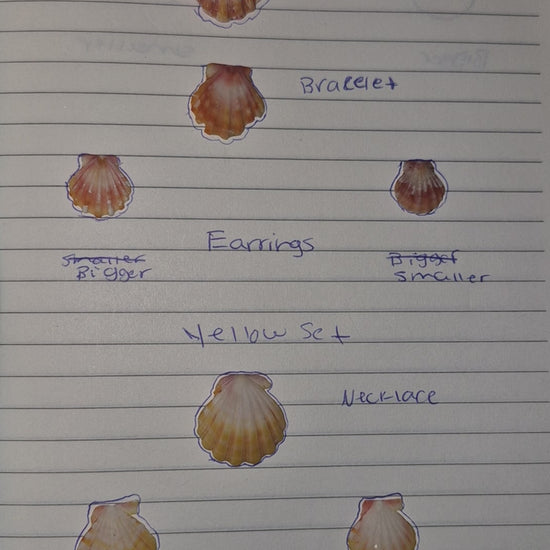 Bracelet
Earrings
smaller
Bigger
Bigger
smaller
Yellow Set
Necklace